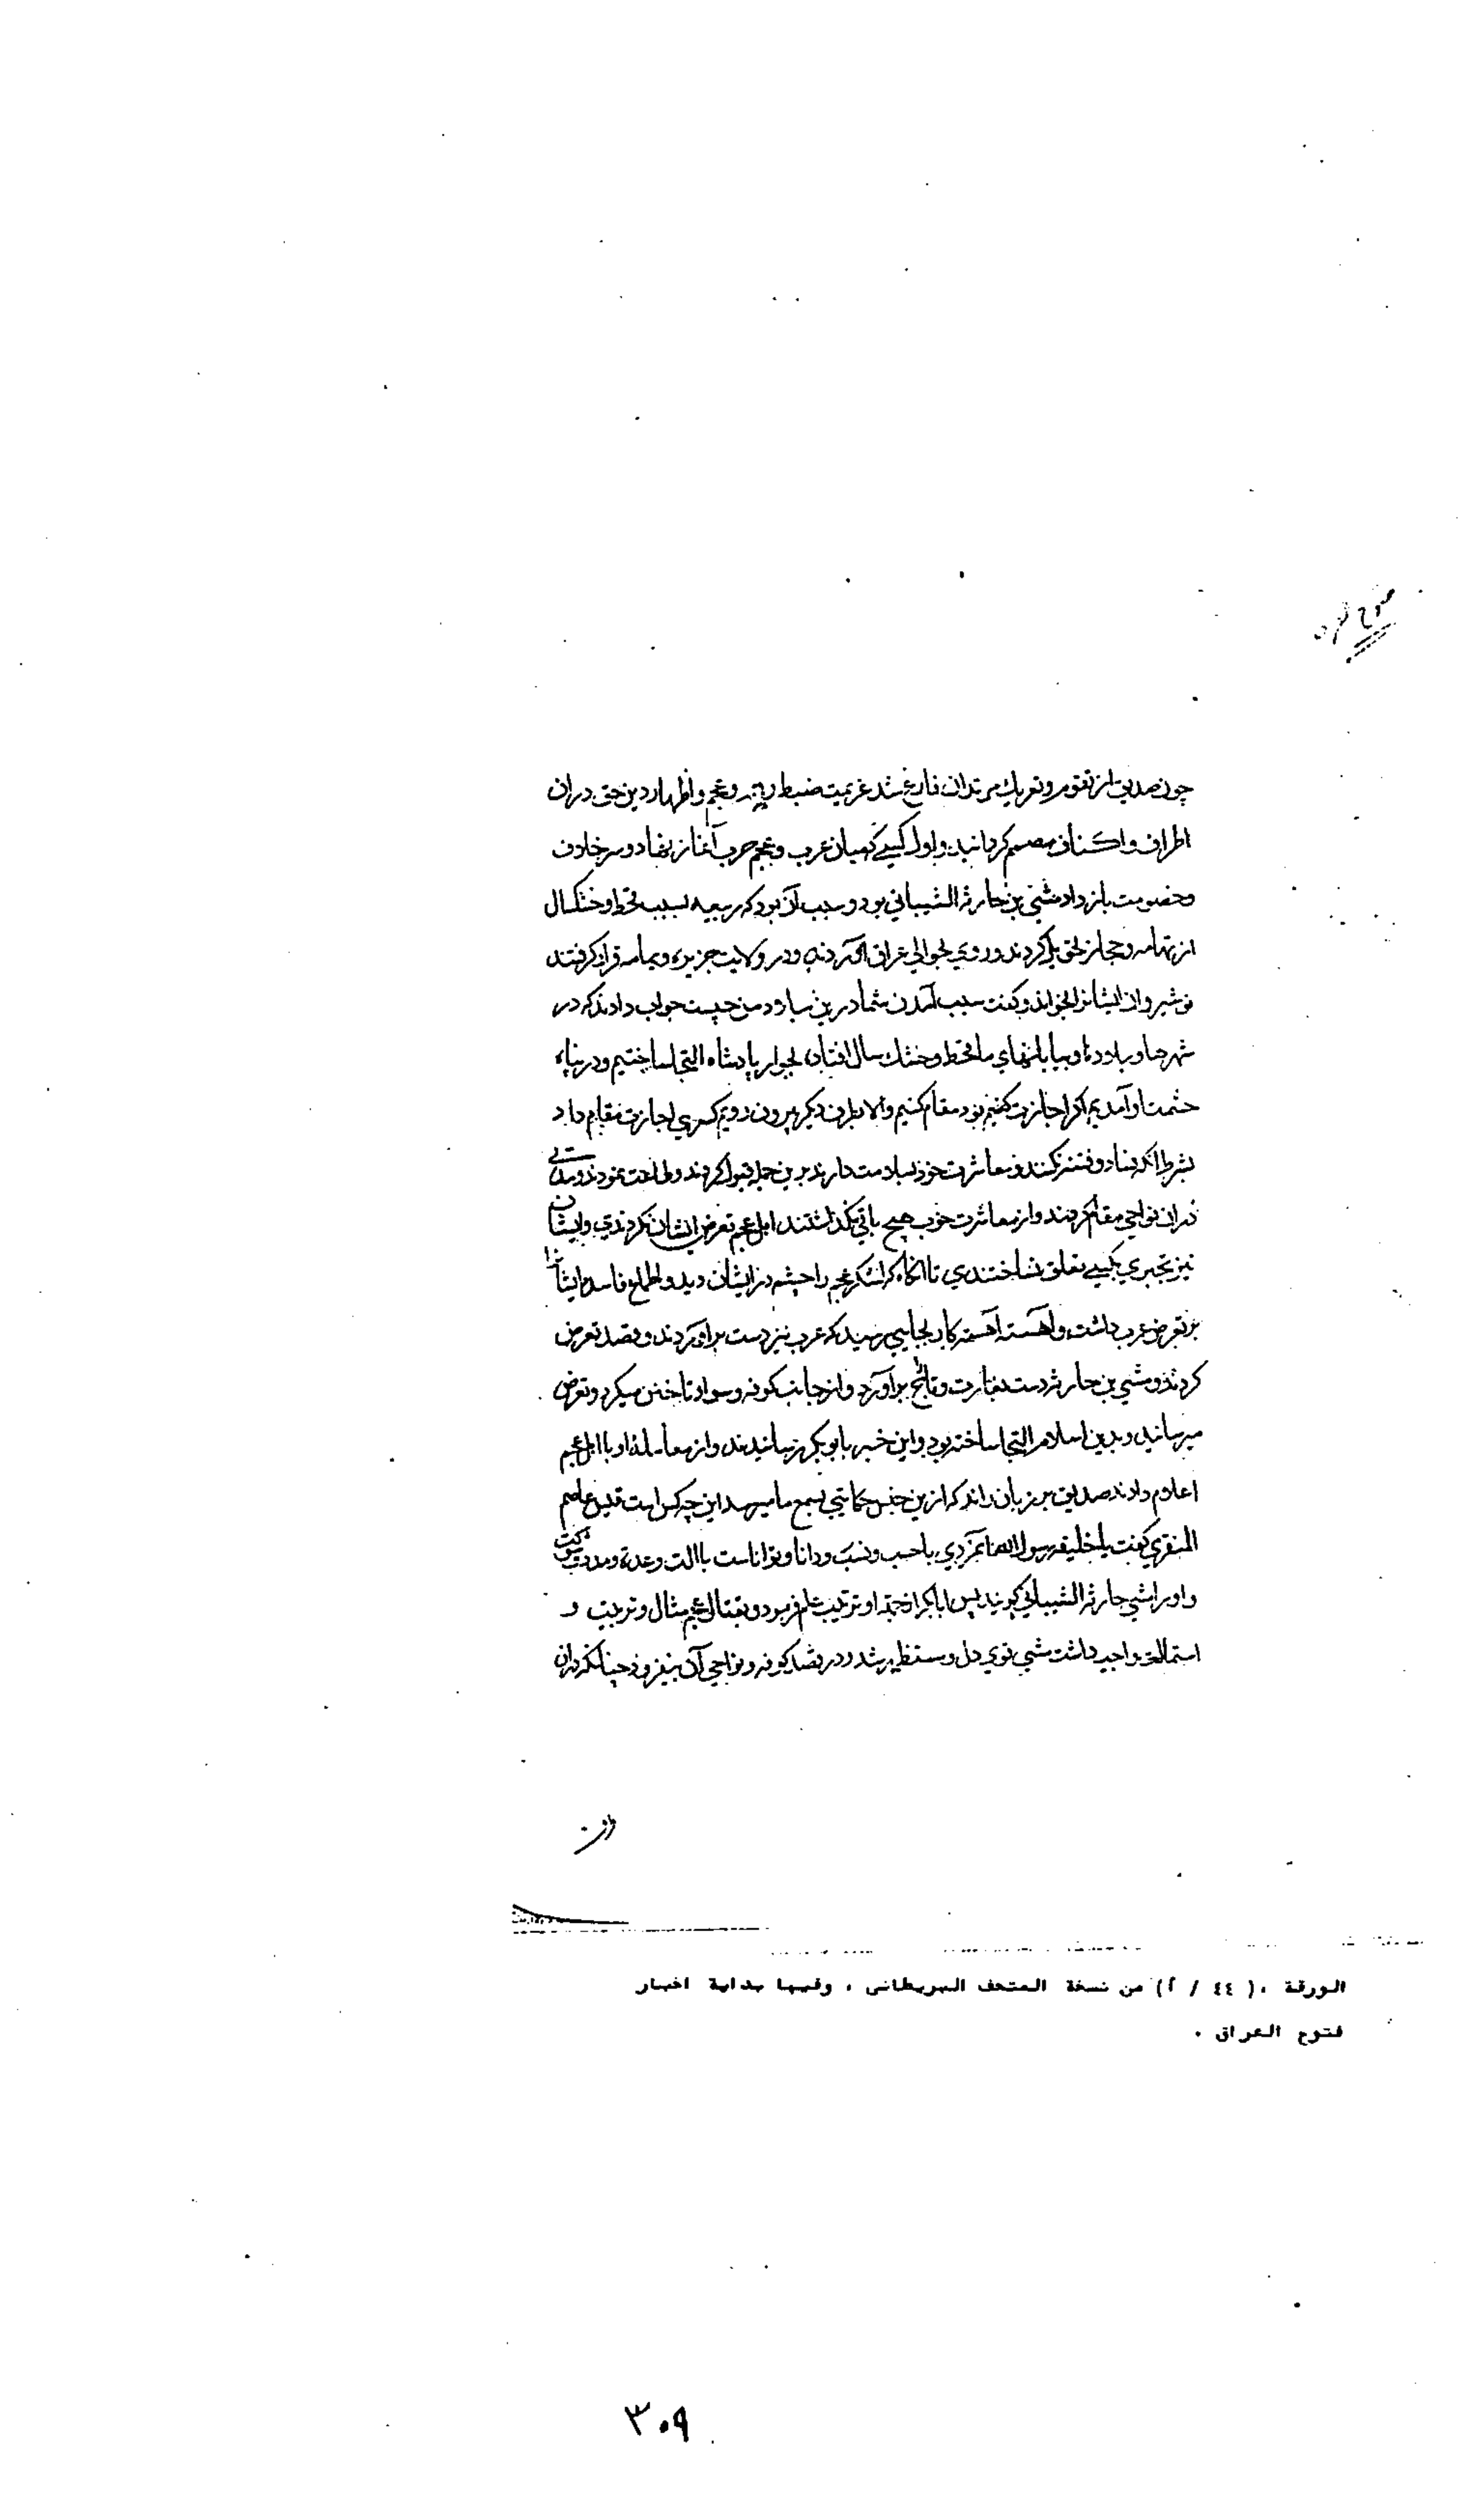 چون صدیق از تقویم و تعریك مرتدان فارغ شد عزیمت ضبط و عجم و اظهار دین حق دران
اطراف و اکناف مصمم کردانید و اول کسی که میان عرب و عجم حرب آغاز نهاد و سر خلاف
وخصومت باز داد مثنی بن حارثه الشیبانی بود و سبب آن بود که ربیعه بسبب قحط و خشکسال
از تهامه و حجاز کردند و روی بحوالی عراق آوردند و در ولایت جزیره و یمامه قرار کرفتند
نوشیروان ایشانرا بخواند و کفت سبب آمدن شما درین بلاد من چیست جواب دادند که در
شهرها و بلادها و بیابانهای ما قحط و خشك سال افتاد بجوار پادشاه التجا ساختیم و در پناه
حشمت او آمدیم اکر اجازت کنیم بود مقام کنیم والا بطرف دیکر بیرون رویم کسری اجازت مقام داد
بشرط آنکه فساد و فتنه نکنند و معاشرت خوذ بسلامت دارند برین جمله قبول کردند و طاعت نمودند و مدتی
دران نواحی مقام کردند و از معاشرت خوب هیچ باقی نکذاشتند اهل عجم تعرض ایشان نکردندی و ایشان
نیز بچیزی بکسی تعلق نساختندی تا آنکاه که لشکر عجم را چشم در ایشان دید و طمع فاسد ایشانرا
بر تعرض عرب داشت و آهسته آهسته کار بجایی رسید که عرب نیز دست برآوردند و قصد تعرض
کردند و مثنی بن حارثه دست بغارت و تاراج برآورد و از جانب کوفه و سواد تاختن میکرد و تعرض
میرسانید و بدین اسلام التجا ساخته بود و این خبر بابوبکر رسانیدند و از معامله او با اهل عجم
اعلام دادند صدیق بر زبان راند که ازین جنس حکایتی بسمع ما میرسد این چه کس است قیس عاصم
المنقری کفت یا خلیفه رسول الله مردی با حسب و نسب و دانا و توانا است با آلت و عدة و مدد و شوکت
و او را مثنی حارثه الشیبانی کویند پس ابابکر از جهة او ترتیب علم فرمود و بقتال عجم مثال و تربیت و
استمالت واجب داشت مثنی قوی دل و مستظهر شد و در کوفه و نواحی آن چنانکه دران
الورقة ( ٤٤ / أ ) من نسخة المتحف البريطاني ، وفيها بداية اخبار
فتوح العراق .
٣٠٩